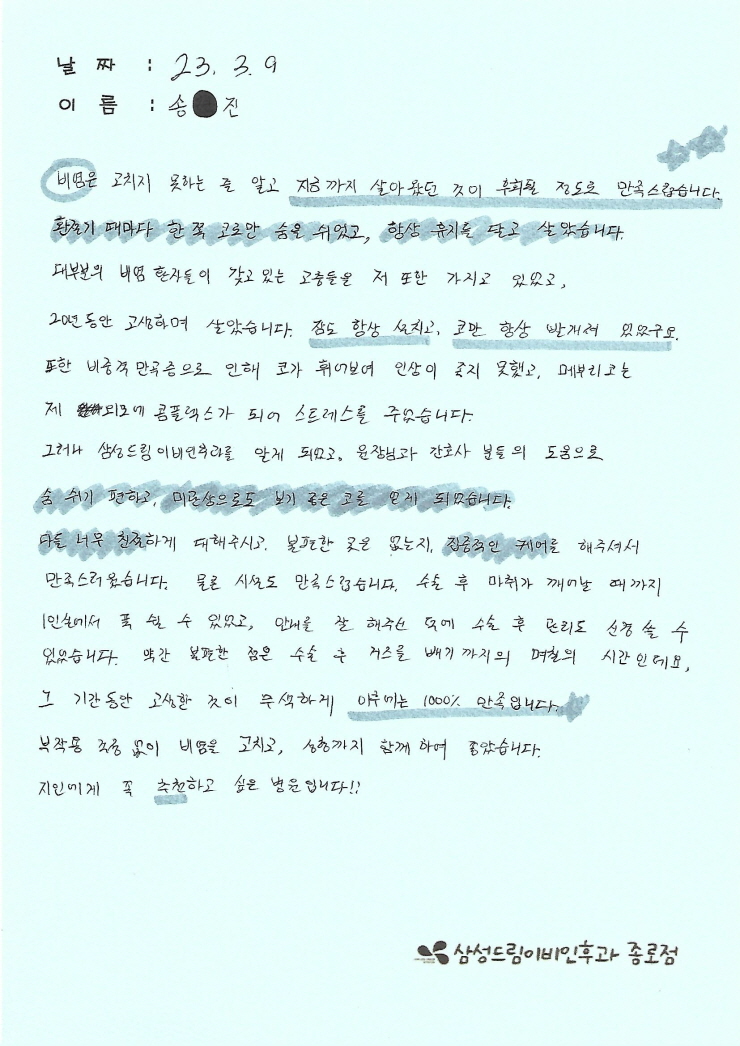 날 짜 : 23. 3. 9
이 름 : 송 진
비염은 고치지 못하는 줄 알고 지금까지 살아왔던 것이 후회될 정도로 만족스럽습니다.
환절기 때마다 한 쪽 코로만 숨을 쉬었고, 항상 휴지를 달고 살았습니다.
대부분의 비염 환자들이 갖고 있는 고충들을 저 또한 가지고 있었고,
20년동안 고생하며 살았습니다. 잠도 항상 설치고, 코만 항상 빨개져 있었구요.
또한 비중격만곡증으로 인해 코가 휘어보여 인상이 좋지 못했고, 메부리코는
제 외모에 콤플렉스가 되어 스트레스를 주었습니다.
그러나 삼성드림이비인후과를 알게 되었고, 원장님과 간호사 분들의 도움으로
숨 쉬기 편하고, 미관상으로도 보기 좋은 코를 얻게 되었습니다.
다들 너무 친절하게 대해주시고, 불편한 곳은 없는지, 집중적인 케어를 해주셔서
만족스러웠습니다. 물론 시설도 만족스럽습니다. 수술 후 마취가 깨어날 때까지
1인실에서 푹 쉴 수 있었고, 안내를 잘 해주신 덕에 수술 후 관리도 신경 쓸 수
있었습니다. 약간 불편한 점은 수술 후 거즈를 빼기까지의 며칠의 시간인데요,
그 기간동안 고생한 것이 무색하게 아무때는 1000% 만족입니다.
부작용 걱정 없이 비염을 고치고, 성형까지 함께 하여 좋았습니다.
지인에게 꼭 추천하고 싶은 병원입니다!!
삼성드림이비인후과 종로점